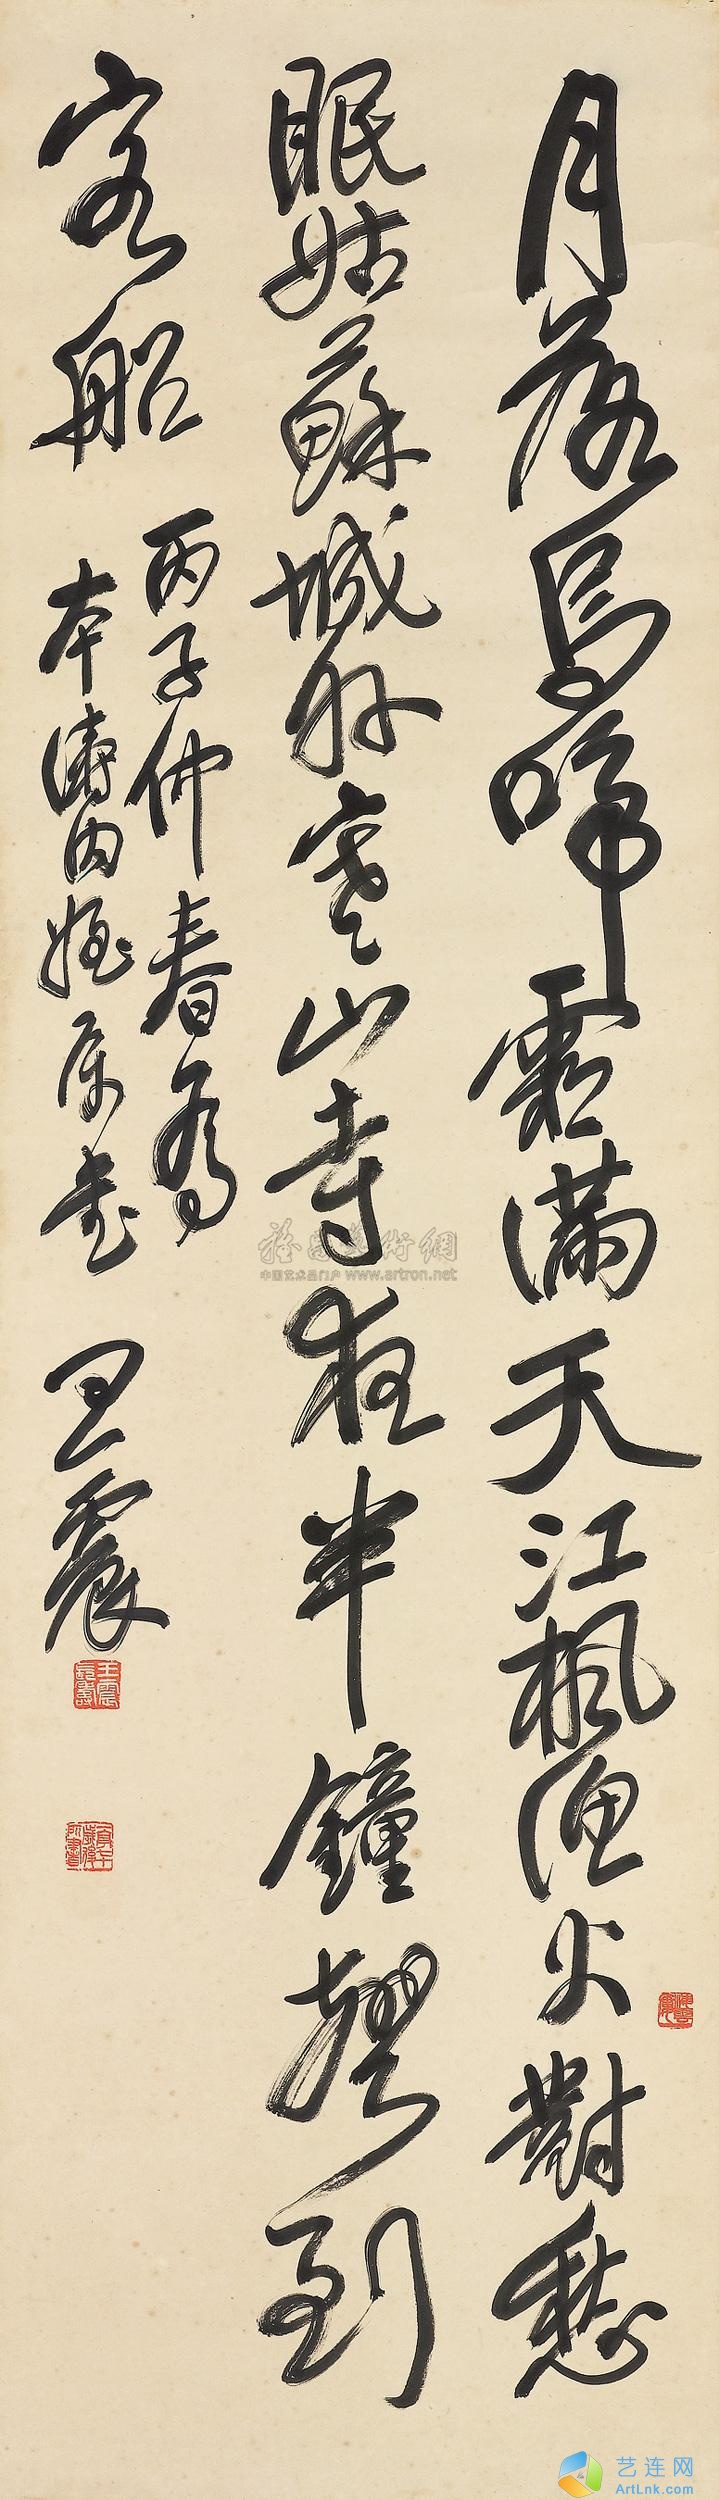 月落烏啼霜滿天江楓漁火對愁
眠姑蘇城外寒山寺夜半鐘聲到
客船
丙子仲春為
本濤內姪屬書
王震
王震長壽
雅昌藝術網
中国艺术品门户 www.artron.net
艺连网
ArtLnk.com